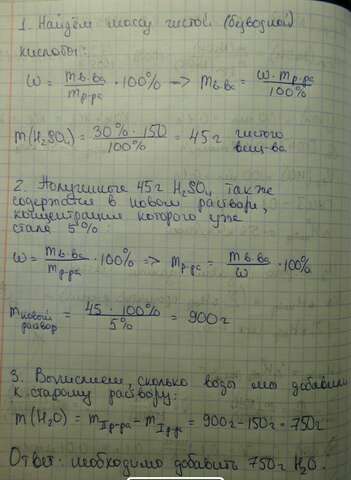 1. Найдём массу чистой (безводной)
кислоты:
ω = m в-ва / m р-ра · 100% —> m в-ва = ω · m р-ра / 100%
m(H₂SO₄) = 30% · 150 / 100% = 45г чистого вещ-ва
2. Полученные 45г H₂SO₄ также
содержатся в новом растворе,
концентрация которого уже
стала 5%:
ω = m в-ва / m р-ра · 100% => m р-ра = m в-ва / ω · 100%
m новый раствор = 45 · 100% / 5% = 900г
3. Вычислием, сколько воды мы добавили
к старому раствору:
m(H₂O) = m II р-ра - m I р-р = 900г - 150г = 750г
Ответ: необходимо добавить 750г H₂O.